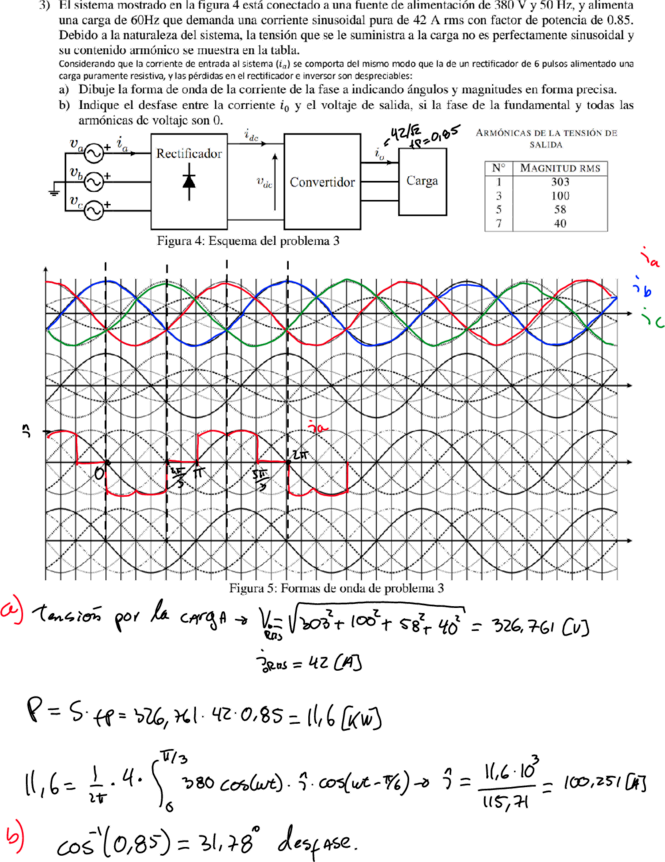 3) El sistema mostrado en la figura 4 está conectado a una fuente de alimentación de 380 V y 50 Hz, y alimenta
una carga de 60Hz que demanda una corriente sinusoidal pura de 42 A rms con factor de potencia de 0.85.
Debido a la naturaleza del sistema, la tensión que se le suministra a la carga no es perfectamente sinusoidal y
su contenido armónico se muestra en la tabla.
Considerando que la corriente de entrada al sistema (i_a) se comporta del mismo modo que la de un rectificador de 6 pulsos alimentado una
carga puramente resistiva, y las pérdidas en el rectificador e inversor son despreciables:
a) Dibuje la forma de onda de la corriente de la fase a indicando ángulos y magnitudes en forma precisa.
b) Indique el desfase entre la corriente i_0 y el voltaje de salida, si la fase de la fundamental y todas las
armónicas de voltaje son 0.
v_a + i_a
v_b +
v_c +
Rectificador
i_dc
v_dc
Convertidor
i_o
42/√2
fP=0,85
Carga
ARMÓNICAS DE LA TENSIÓN DE
SALIDA
N° MAGNITUD RMS
1 303
3 100
5 58
7 40
Figura 4: Esquema del problema 3
ia
ib
ic
ia
0
2π/3
π
5π/3
2π
Figura 5: Formas de onda de problema 3
a) tensión por la carga → V_o RMS = √303²+100²+58²+40² = 326,761 [V]
i_RMS = 42 [A]
P = S·fp = 326,761·42·0,85 = 11,6 [KW]
11,6 = 1/2π · 4 · ∫_0^π/3 380 cos(ωt) · î · cos(ωt-π/6) → î = 11,6·10³/115,71 = 100,251 [A]
b) cos⁻¹(0,85) = 31,78° desfase.